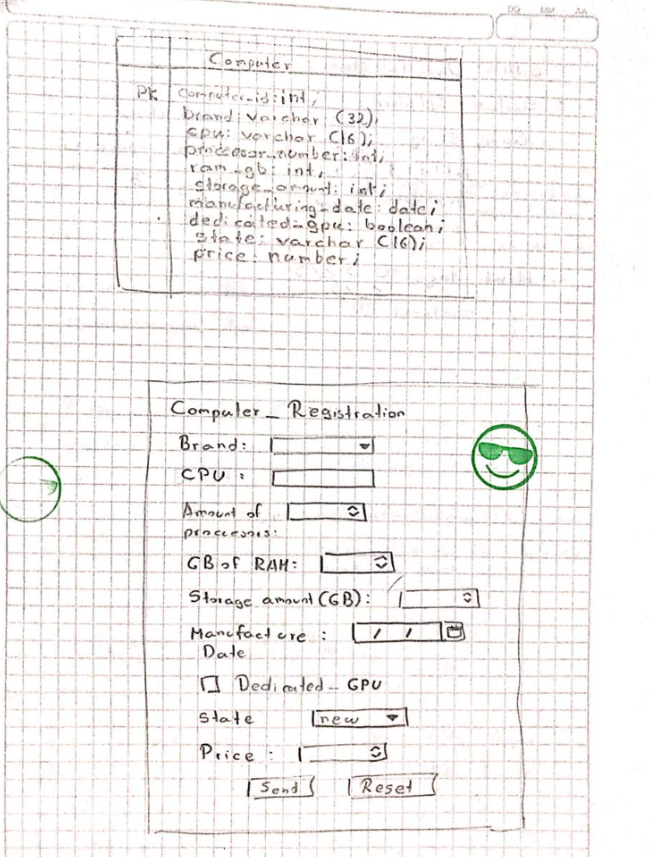 DD MM AA
Computer
PK computer_id: int;
brand: varchar (32);
cpu: varchar (16);
processor_number: int;
ram_gb: int;
storage_amount: int;
manufacturing_date: date;
dedicated_gpu: boolean;
state: varchar (16);
price: number;
Computer_Registration
Brand:
CPU :
Amount of
processors:
GB of RAM:
Storage amount (GB):
Manufacture : / /
Date
Dedicated_GPU
State new
Price :
Send Reset